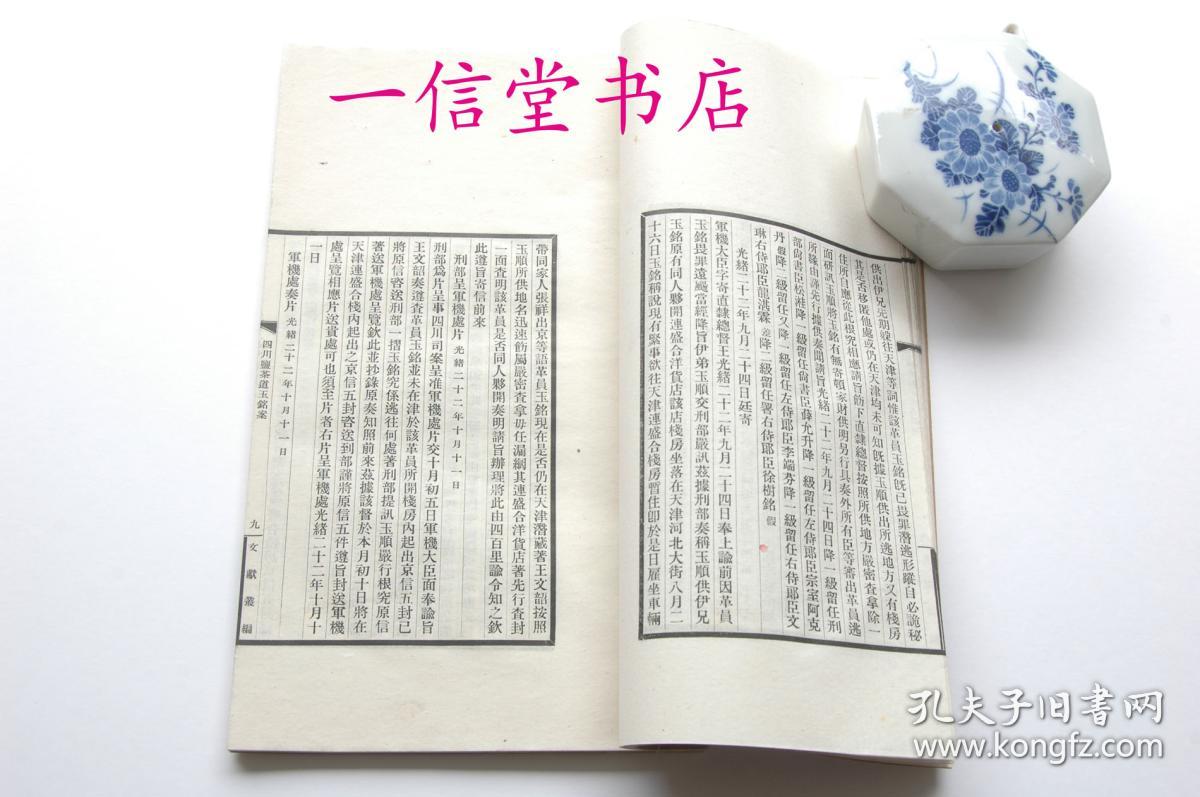 一信堂书店
供出伊兄先期竄往天津等詞惟該革員玉銘既已畏罪潛逃形蹤自必詭秘
其是否移匿他處或仍在天津均未可知既據玉順供出所逃地方又有棧房
住所自應從此根究相應請旨飭下直隸總督按照所供地方嚴密查拿除一
面研訊玉順將玉銘有無寄頓家財供明另行具奏外所有臣等審出革員逃
所緣由謹先行據供奏聞請旨光緒二十二年九月二十四日降一級留任刑
部尙書臣松溎降一級留任尙書臣薛允升降一級留任左侍郎臣宗室阿克
丹假降二級留任又降一級留任左侍郎臣李端棻降一級留任右侍郎臣文
琳右侍郎臣龍湛霖差降二級留任署右侍郎臣徐樹銘假
光緒二十二年九月二十四日廷寄
軍機大臣字寄直隸總督王光緒二十二年九月二十四日奉上諭前因革員
玉銘畏罪遠颺當經降旨伊弟玉順交刑部嚴訊茲據刑部奏稱玉順供伊兄
玉銘原有同人夥開連盛合洋貨店該店棧房坐落在天津河北大街八月二
十六日玉銘稱說現有緊事欲往天津連盛合棧房暫住卽於是日雇坐車輛
帶同家人張祥出京等語革員玉銘現在是否仍在天津潛藏著王文韶按照
玉順所供地名迅速飭屬嚴密查拿毋任漏網其連盛合洋貨店著先行查封
一面查明該革員是否同人夥開奏明請旨辦理將此由四百里諭令知之欽
此遵旨寄信前來
刑部呈軍機處片 光緒二十二年十月十一日
刑部爲片呈事四川司案呈准軍機處片交十月初五日軍機大臣面奉諭旨
王文韶奏遵查革員玉銘並未在津於該革員所開棧房內起出京信五封已
將原信咨送刑部一摺玉銘究係逃往何處著刑部提訊玉順嚴行根究原信
著送軍機處呈覽欽此並抄錄原奏知照前來茲據該督於本月初十日將在
天津連盛合棧內起出之京信五封咨送到部謹將原信五件遵旨封送軍機
處呈覽相應片送貴處可也須至片者右片呈軍機處光緒二十二年十月十
一日
軍機處奏片 光緒二十二年十月十一日
四川鹽茶道玉銘案
九
文獻叢編
孔夫子旧书网
www.kongfz.com